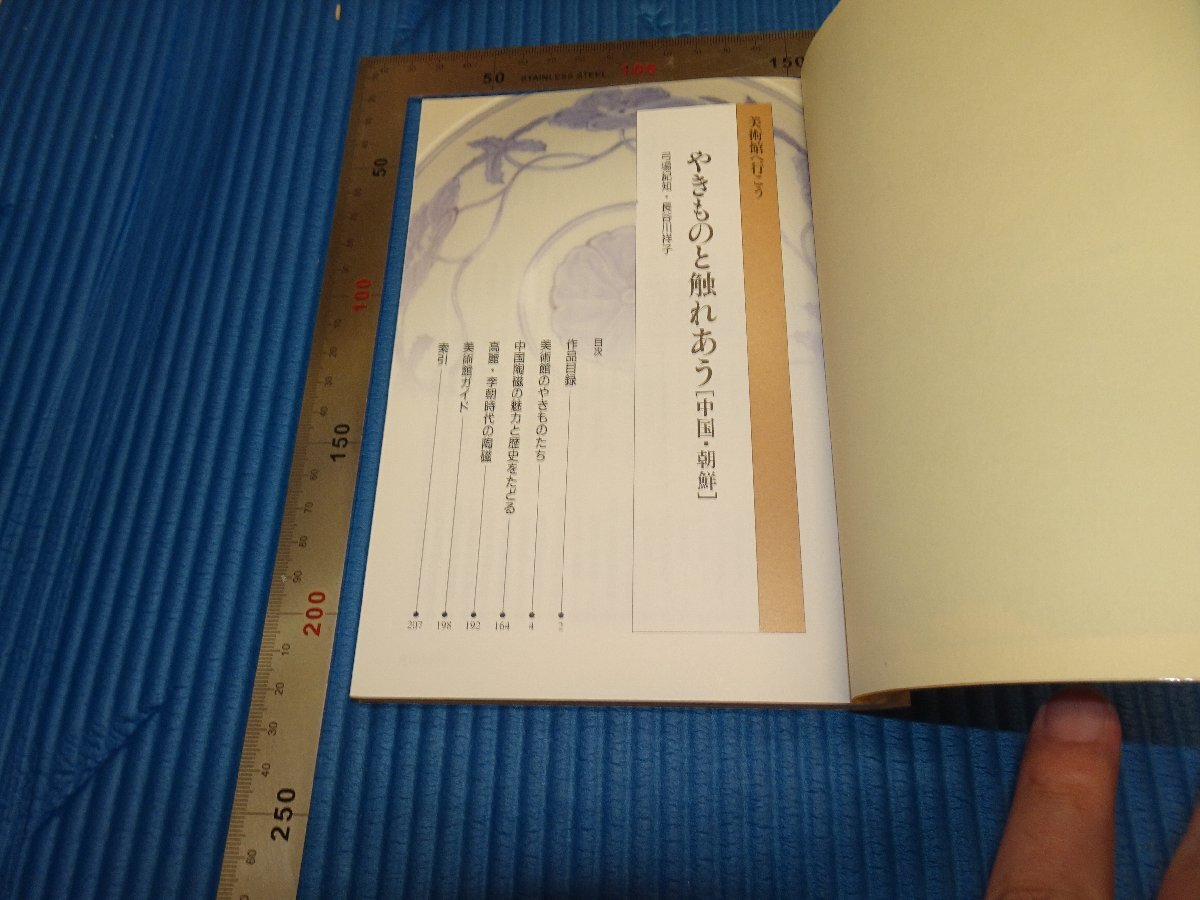 美術館へ行こう
やきものと触れあう[中国・朝鮮]
弓場紀知・長谷川祥子
目次
作品目録 2
美術館のやきものたち 4
中国陶磁の魅力と歴史をたどる 164
高麗・李朝時代の陶磁 192
美術館ガイド 198
索引 207
50
STAINLESS STEEL
100
150
50
100
150
200
250